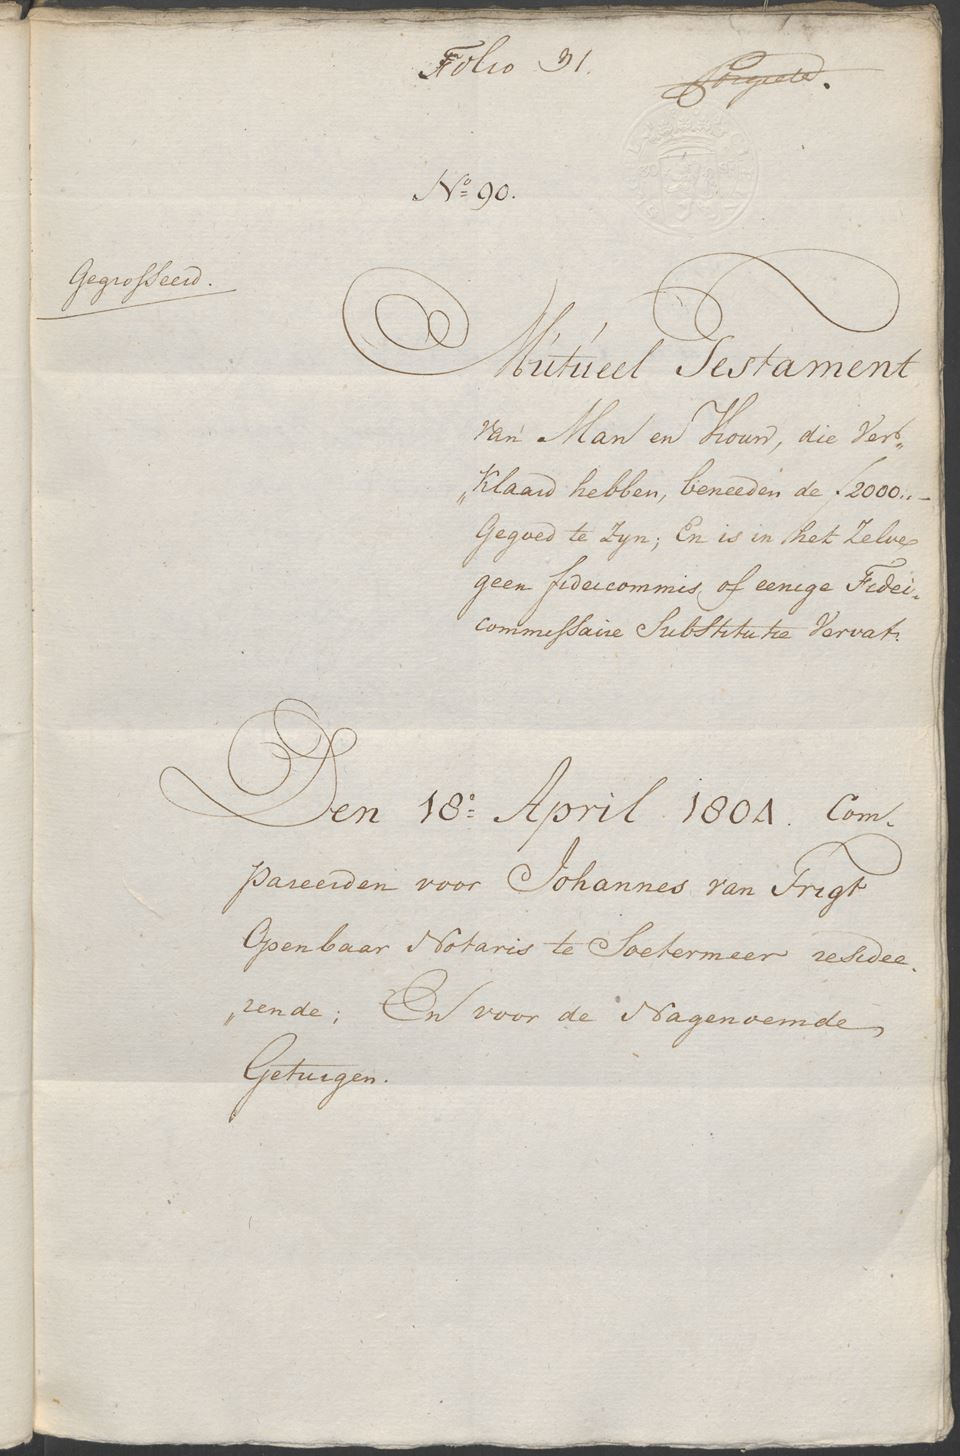 Folio 31.
No. 90.
Gegrosseerd.
Mutueel Testament
van Man en Vrouw, die Ver„
„klaard hebben, beneeden de ƒ2000..–
Gegoed te Zyn; En is in het Zelve
geen fideicommis, of eenige Fidei-
commissaire Substitutie Vervat.
Den 18e. April 1804. Com-
pareerden voor Johannes van Frigt
Openbaar Notaris te Soetermeer residee-
„rende; En voor de Nagenoemde
Getuigen.